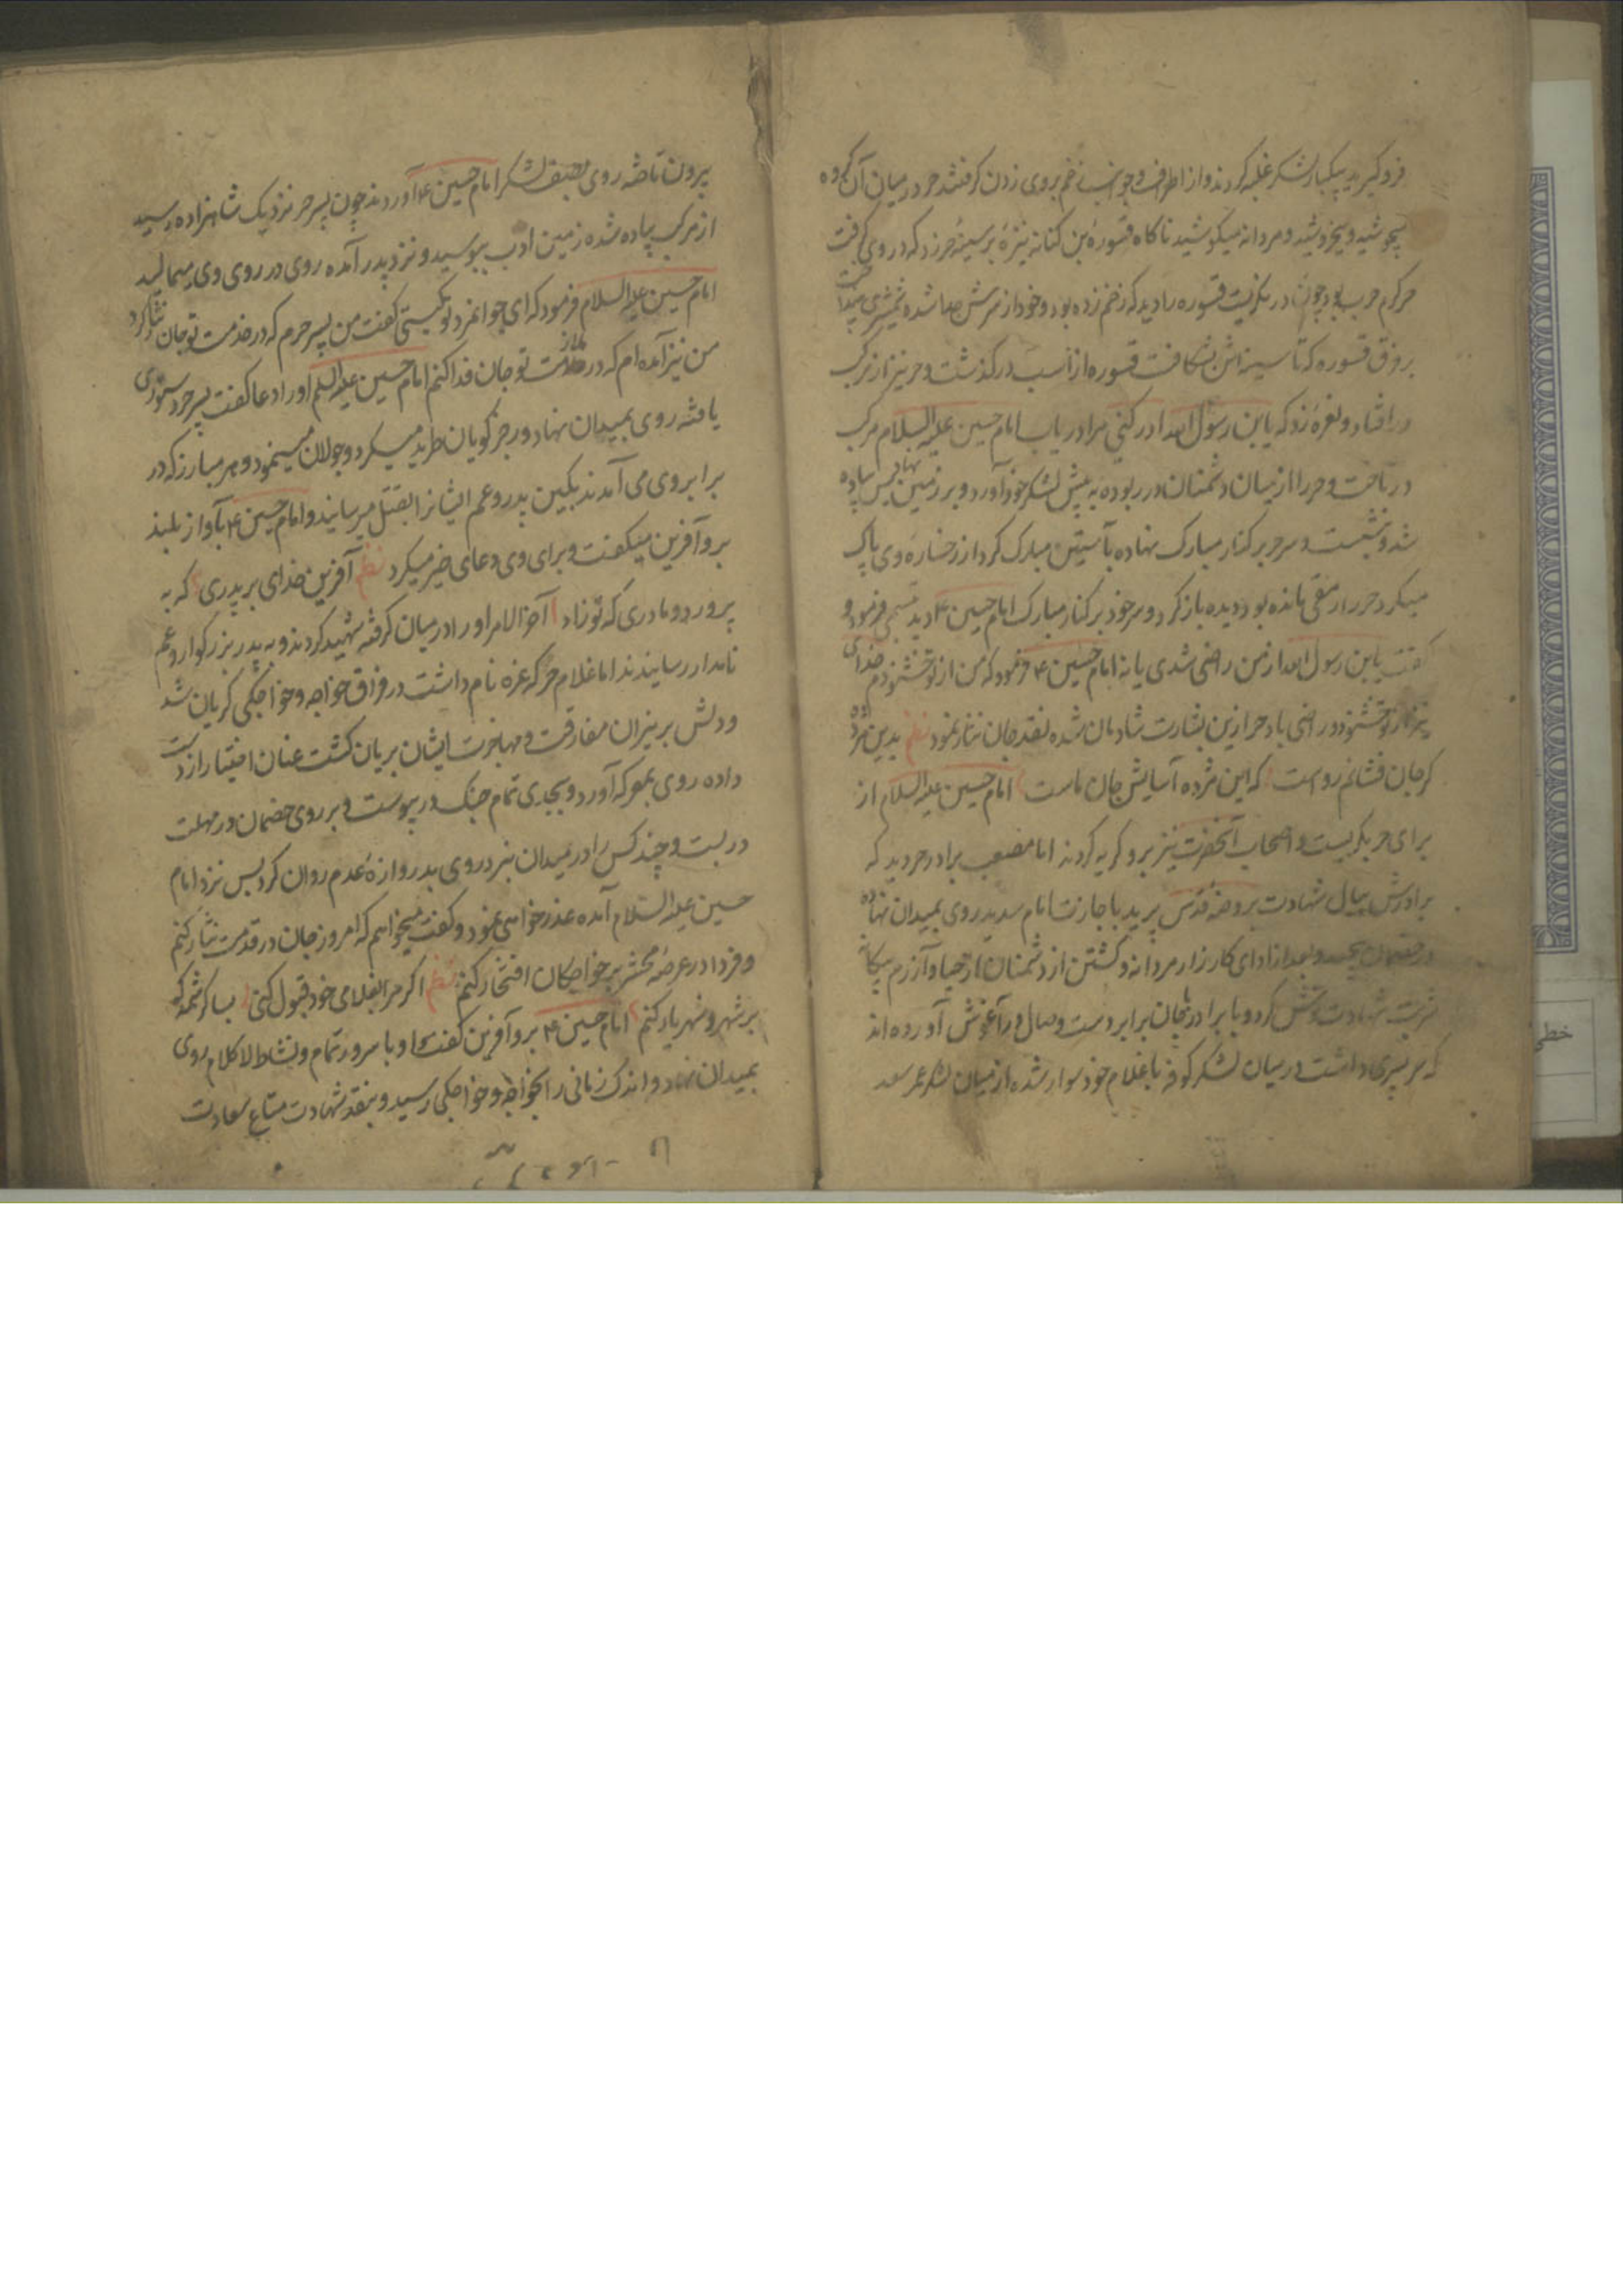 فرو گیرید بیکبار لشکر غلبه کردند و از اطراف و جوانب زخم بروی زدن گرفتند حر در میان آن گروه
میجوشید و میخروشید و مردانه میکوشید ناگاه قسورهٔ بن کنانه نیزهٔ بر سینهٔ حر زد که در وی گرفت
حر گرم حرب بود چون در نگریست قسوره را دید که زخم زده بود و خود از سرش جدا شده شمشیری
بر فرق قسوره که تا سینه‌اش بشکافت قسوره از اسب در گذشت و حر نیز از مرکب
در افتاد و نعره زد که یا بن رسول الله ادرکنی مرا دریاب امام حسین علیه السلام مرکب
در تاخت و حر را از میان دشمنان در ربوده به پیش لشکر خود آورد و بر زمین نهاد پس پیاده
شد و بنشست و سر حر بر کنار مبارک نهاده بآستین مبارک گرد از رخساره وی پاک
میکرد حر را رمقی مانده بود دیده باز کرد و سر خود بر کنار مبارک امام حسین ع دید تبسمی فرمود و
گفت یا بن رسول الله از من راضی شدی یا نه امام حسین ع فرمود که من از تو خشنودم خدای
نیز از تو خشنود و راضی باد حر ازین بشارت شادمان شده نقد جان نثار نمود نظم بدین مژده
گر جان فشانم رواست که این مژده آسایش جان ماست امام حسین علیه السلام از
برای حر بگریست و اصحاب آنحضرت نیز برو گریه کردند اما مصعب برادر حر دید که
برادرش ببال شهادت بروضه قدس پرید باجازت امام روی بمیدان نهاد
و بعد از ادای کارزار مردانه و کشتن از دشمنان
شربت شهادت نوش کرد و با برادر بجان برابر دست وصال در آغوش آورده‌اند
که حر پسری داشت در میان لشکر کوفه با غلام خود سوار شده از میان لشکر عمر سعد
بیرون تاخته روی بصف لشکر امام حسین ع آوردند چون پسر حر نزدیک شاهزاده رسید
از مرکب پیاده شده زمین ادب ببوسید و نزد پدر آمده روی در روی وی میمالید
امام حسین علیه السلام فرمود که ای جوانمرد تو کیستی گفت من پسر حرم که در خدمت تو جان نثار کرد
من نیز آمده‌ام که در ملازمت تو جان فدا کنم امام حسین علیه السلم او را دعا گفت پسر حر دستوری
یافته روی بمیدان نهاد و رجز گویان طرید میکرد و جولان مینمود و هر مبارز که در
برابر وی می آمدند بکین پدر و عم ایشانرا بقتل میرسانید و امام حسین ع بآواز بلند
برو آفرین میگفت و برای وی دعای خیر میکرد نظم آفرین خدای بر پدری که به
پرورد و مادری که تو زاد آخر الامر او را در میان گرفته شهید کردند و به پدر بزرگوار و عم
نامدار رسانیدند اما غلام حر که غره نام داشت در فراق خواجه و خواجگی گریان شد
و دلش بر نیران مفارقت و مهاجرت ایشان بریان گشت عنان اختیار از دست
داده روی بمعرکه آورد و بجدی تمام جنگ در پیوست و بر روی خصمان در مهلت
در بست و چند کس را در میدان نبرد روی بدروازهٔ عدم روان کرد پس نزد امام
حسین علیه السلام آمده عذرخواهی نمود و گفت میخواهم که امروز جان در قدمت نثار کنم
و فردا در عرصهٔ محشر بر خواجگان افتخار کنم نظم اگر مرا بغلامی خود قبول کنی بسا کرشمه که
بر شهر و شهریار کنم امام حسین ع برو آفرین گفت او با سرور تمام و نشاط لا کلام روی
بمیدان نهاد و اندک زمانی را بخواجه و خواجگی رسید و بنقد شهادت متاع سعادت
خطی